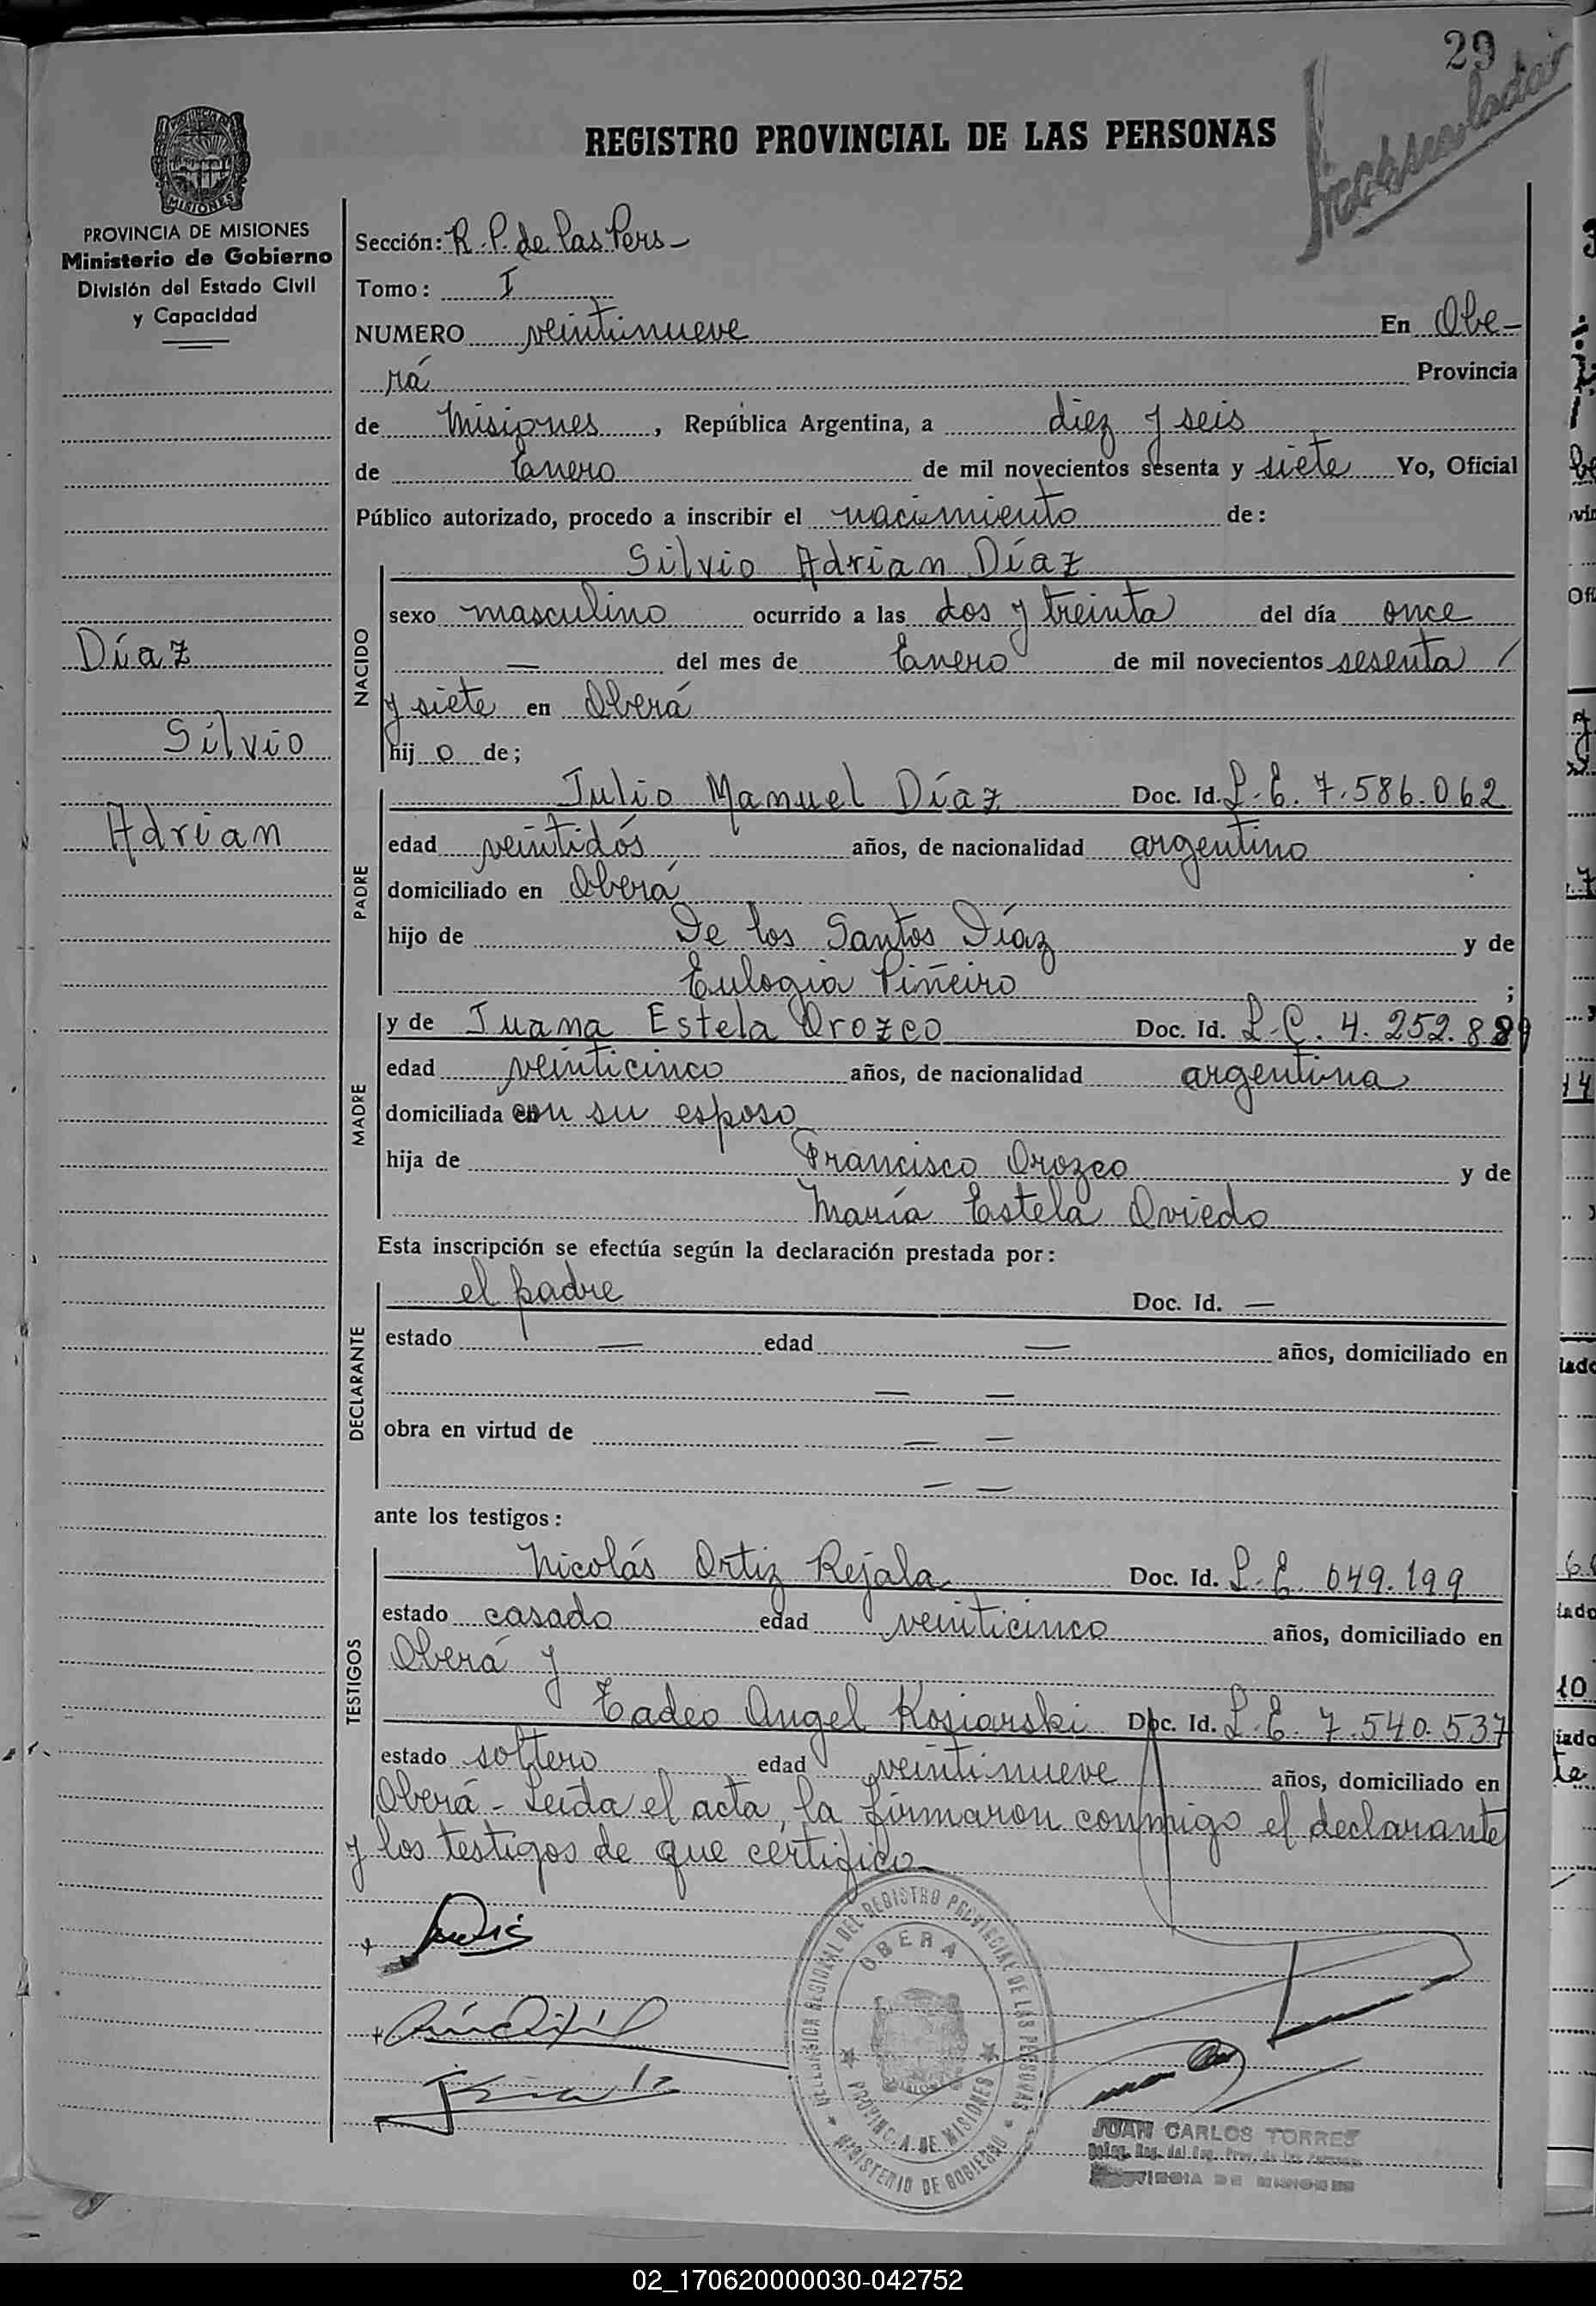 29
REGISTRO PROVINCIAL DE LAS PERSONAS
PROVINCIA DE MISIONES
Ministerio de Gobierno
División del Estado Civil
y Capacidad
Díaz
Silvio
Adrian
Sección: R. P. de las Pers -
Tomo: I
NUMERO veintinueve En Obe-
rá Provincia
de Misiones, República Argentina, a diez y seis
de Enero de mil novecientos sesenta y siete Yo, Oficial
Público autorizado, procedo a inscribir el nacimiento de:
NACIDO
Silvio Adrian Díaz
sexo masculino ocurrido a las dos y treinta del día once
— del mes de Enero de mil novecientos sesenta /
y siete en Oberá
hijo de;
PADRE
Julio Manuel Díaz Doc. Id. L. E. 7.586.062
edad veintidós años, de nacionalidad argentino
domiciliado en Oberá
hijo de De los Santos Díaz y de
Eulogia Piñeiro ;
MADRE
y de Juana Estela Orozco Doc. Id. L. C. 4.252.889
edad veinticinco años, de nacionalidad argentina
domiciliada con su esposo
hija de Francisco Orozco y de
María Estela Oviedo
Esta inscripción se efectúa según la declaración prestada por:
DECLARANTE
el padre Doc. Id. —
estado — edad — años, domiciliado en
— —
obra en virtud de — —
— —
ante los testigos:
TESTIGOS
Nicolás Ortiz Rejala Doc. Id. L. E. 649.199
estado casado edad veinticinco años, domiciliado en
Oberá y
Tadeo Angel Kosiarski Doc. Id. L. E. 7.540.537
estado soltero edad veintinueve años, domiciliado en
Oberá - Leída el acta, la firmaron conmigo el declarante
y los testigos de que certifico
DELEGACION REGIONAL DEL REGISTRO PROVINCIAL DE LAS PERSONAS
OBERA
PROVINCIA DE MISIONES
MINISTERIO DE GOBIERNO
JUAN CARLOS TORRES
Deleg. Reg. del Reg. Prov. de las Personas
PROVINCIA DE MISIONES
02_170620000030-042752